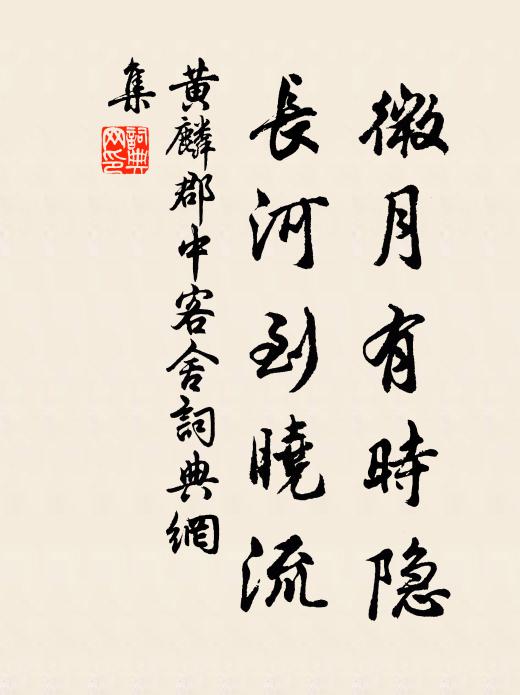 微月有時隐
長河到曉流
黄麟郡中客舍詞典網
集
詞典
网印